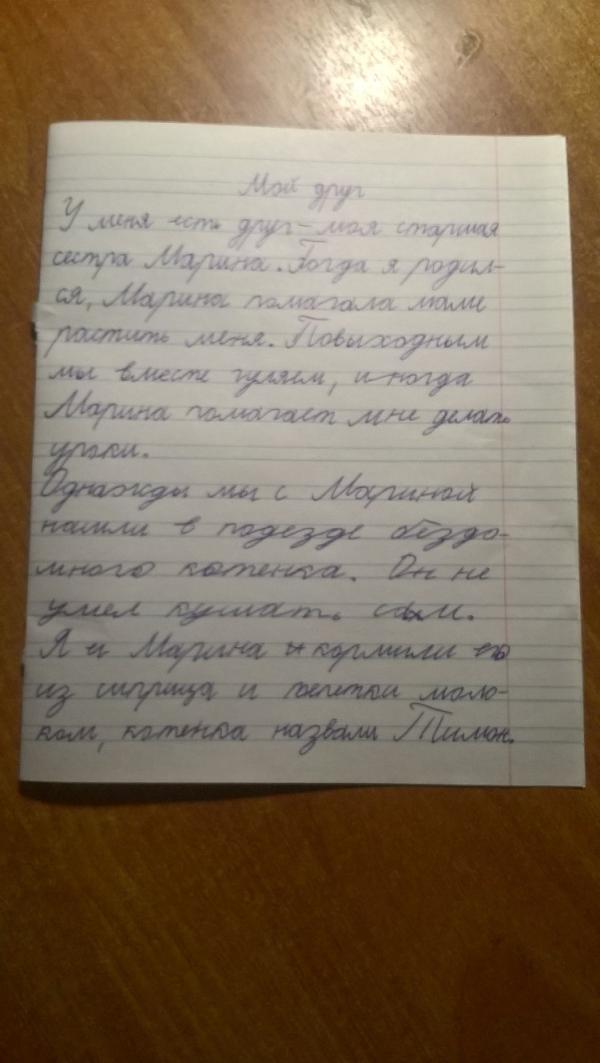 Мой друг
У меня есть друг – моя старшая
сестра Марина. Тогда я родил-
ся, Марина помагала маме
растить меня. Повыходным
мы вместе гуляем, иногда
Марина помагает мне делать
уроки.
Однажды мы с Мариной
нашли в подезде бездо-
много котенка. Он не
умел кушать сам.
Я и Марина кормили его
из шприца и пепетки моло-
ком, котенка назвали Тимон.